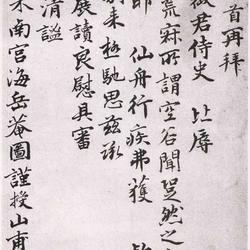 首再拜
徽君侍史 比辱
荒寂所謂空谷聞跫然之
即 仙舟行疾弗獲
別来極馳思兹承
展讀良慰具審
清謐
米南宫海岳菴圖謹授山甫